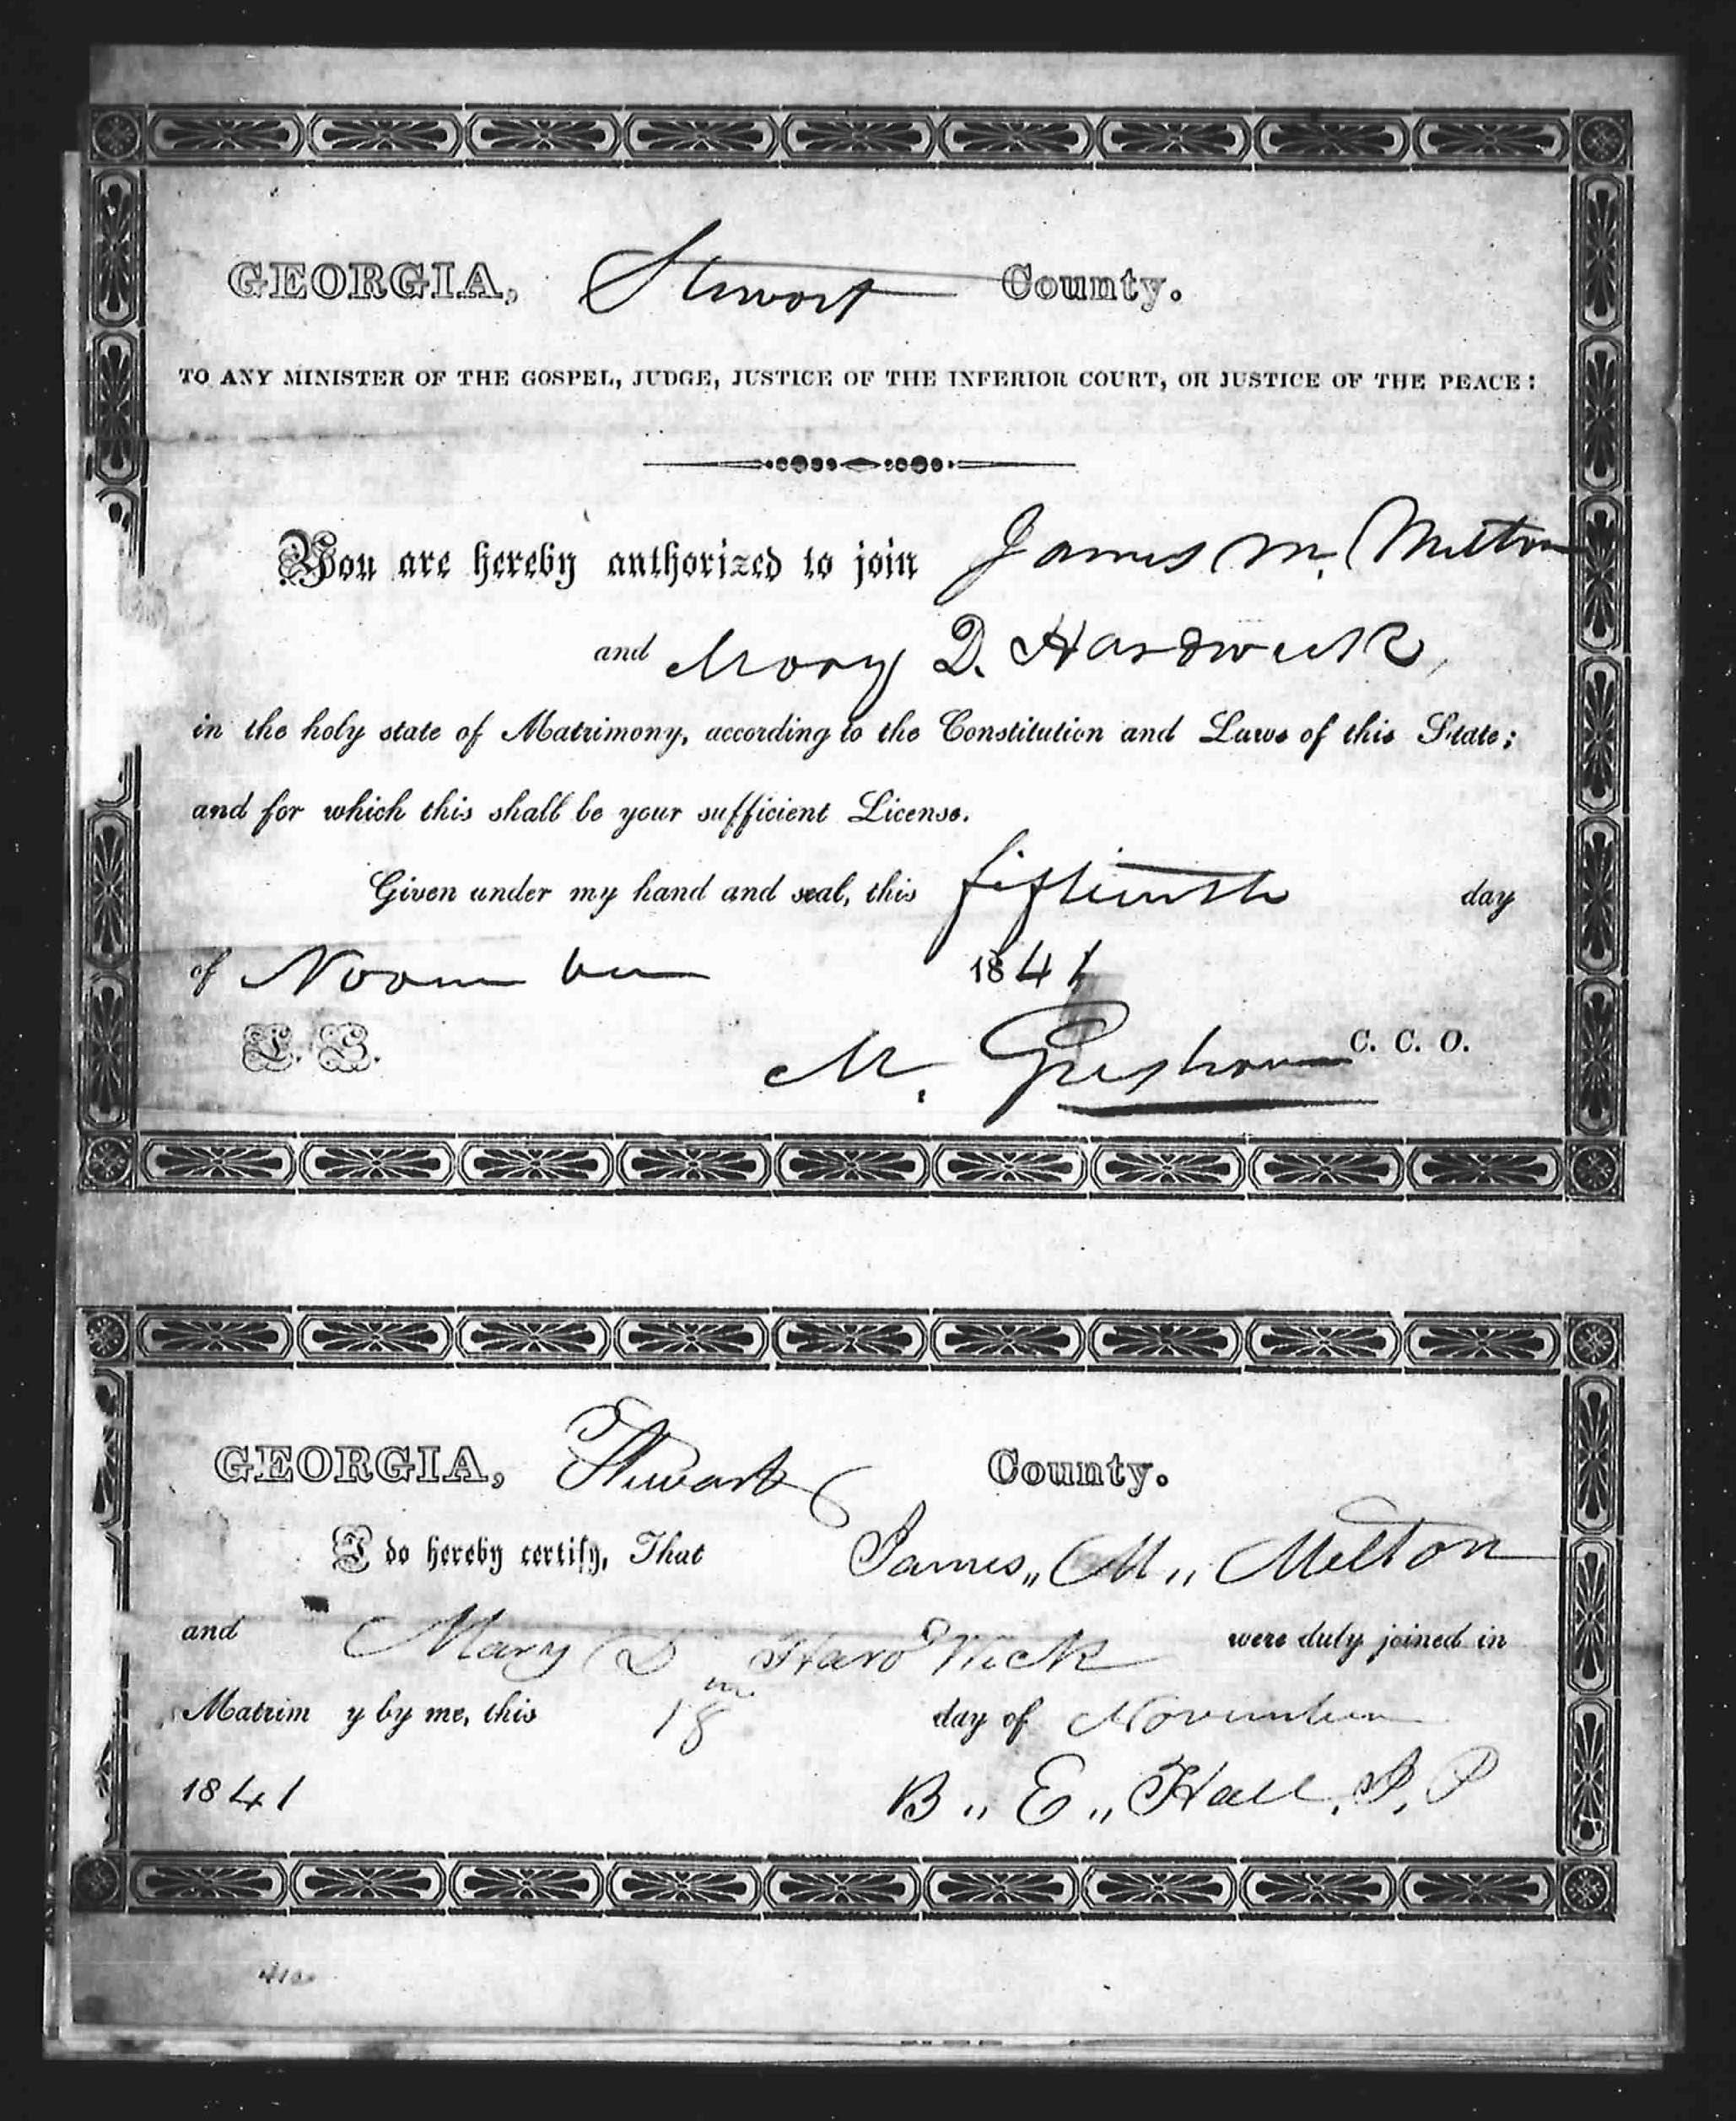 GEORGIA, Stewart County.
TO ANY MINISTER OF THE GOSPEL, JUDGE, JUSTICE OF THE INFERIOR COURT, OR JUSTICE OF THE PEACE:
You are hereby authorized to join James M. Melton
and Mary D. Hardwick,
in the holy state of Matrimony, according to the Constitution and Laws of this State;
and for which this shall be your sufficient License.
Given under my hand and seal, this fifteenth day
of November 1841
L. S.
M. Gresham C. C. O.
GEORGIA, Stewart County.
I do hereby certify, That James,, M,, Melton
and Mary D,, Hard Wick were duly joined in
Matrim y by me, this 18 day of November
1841 B,, E,, Hall, J, P